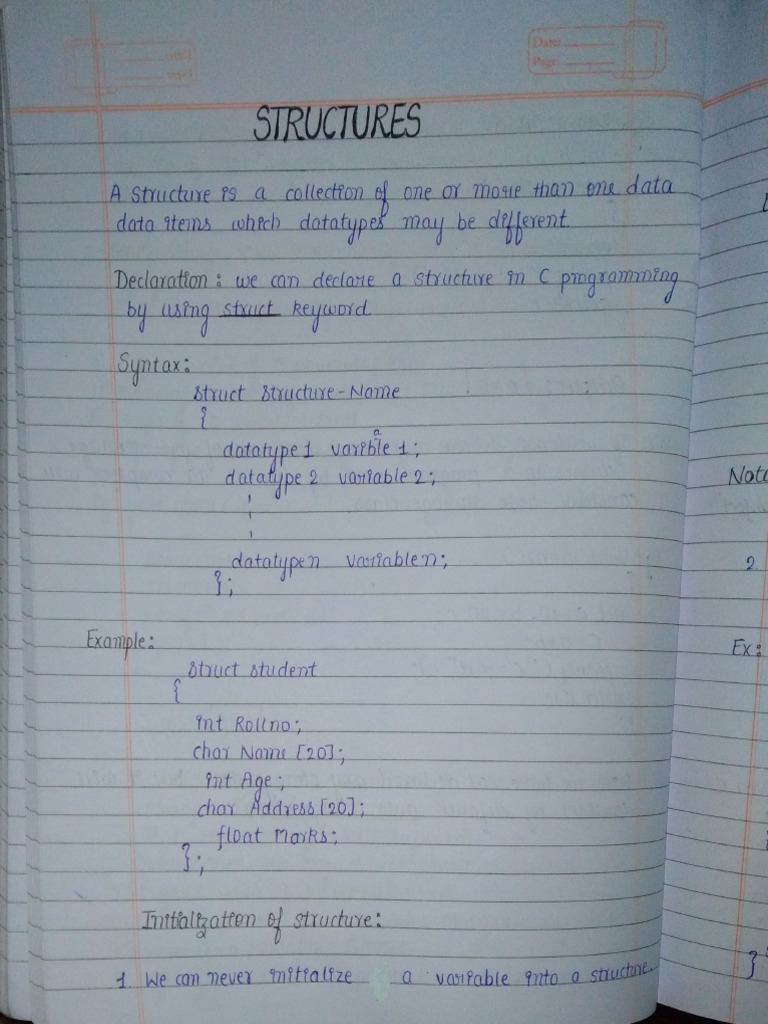 Date:
Page:
STRUCTURES
A structure is a collection of one or more than one data
data items which datatypes may be different.
Declaration: we can declare a structure in C programming
by using struct keyword.
Syntax:
struct structure-Name
{
datatype 1 varible 1;
a
datatype 2 variable 2;
datatype n variable n;
};
Example:
struct student
{
int Rollno;
char Name [20];
int Age;
char Address [20];
float Marks;
};
Initialization of structure:
1. We can never initialize a variable into a structure.
2
Ex:
}